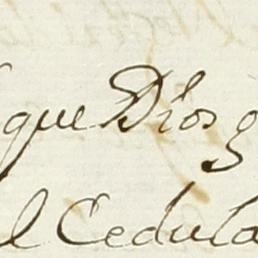 que Dios g
l Cedula